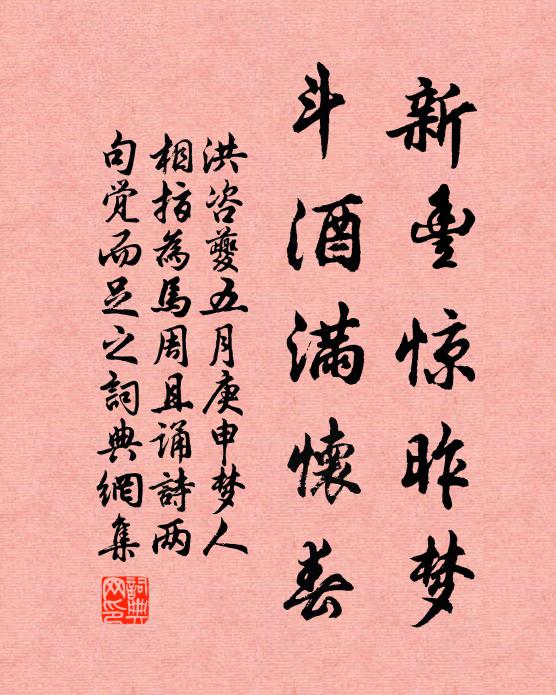 新豊惊昨梦
斗酒满懷春
洪咨夔五月庚申梦人
相指為馬周且诵詩两
句觉而足之詞典網集
詞典网印